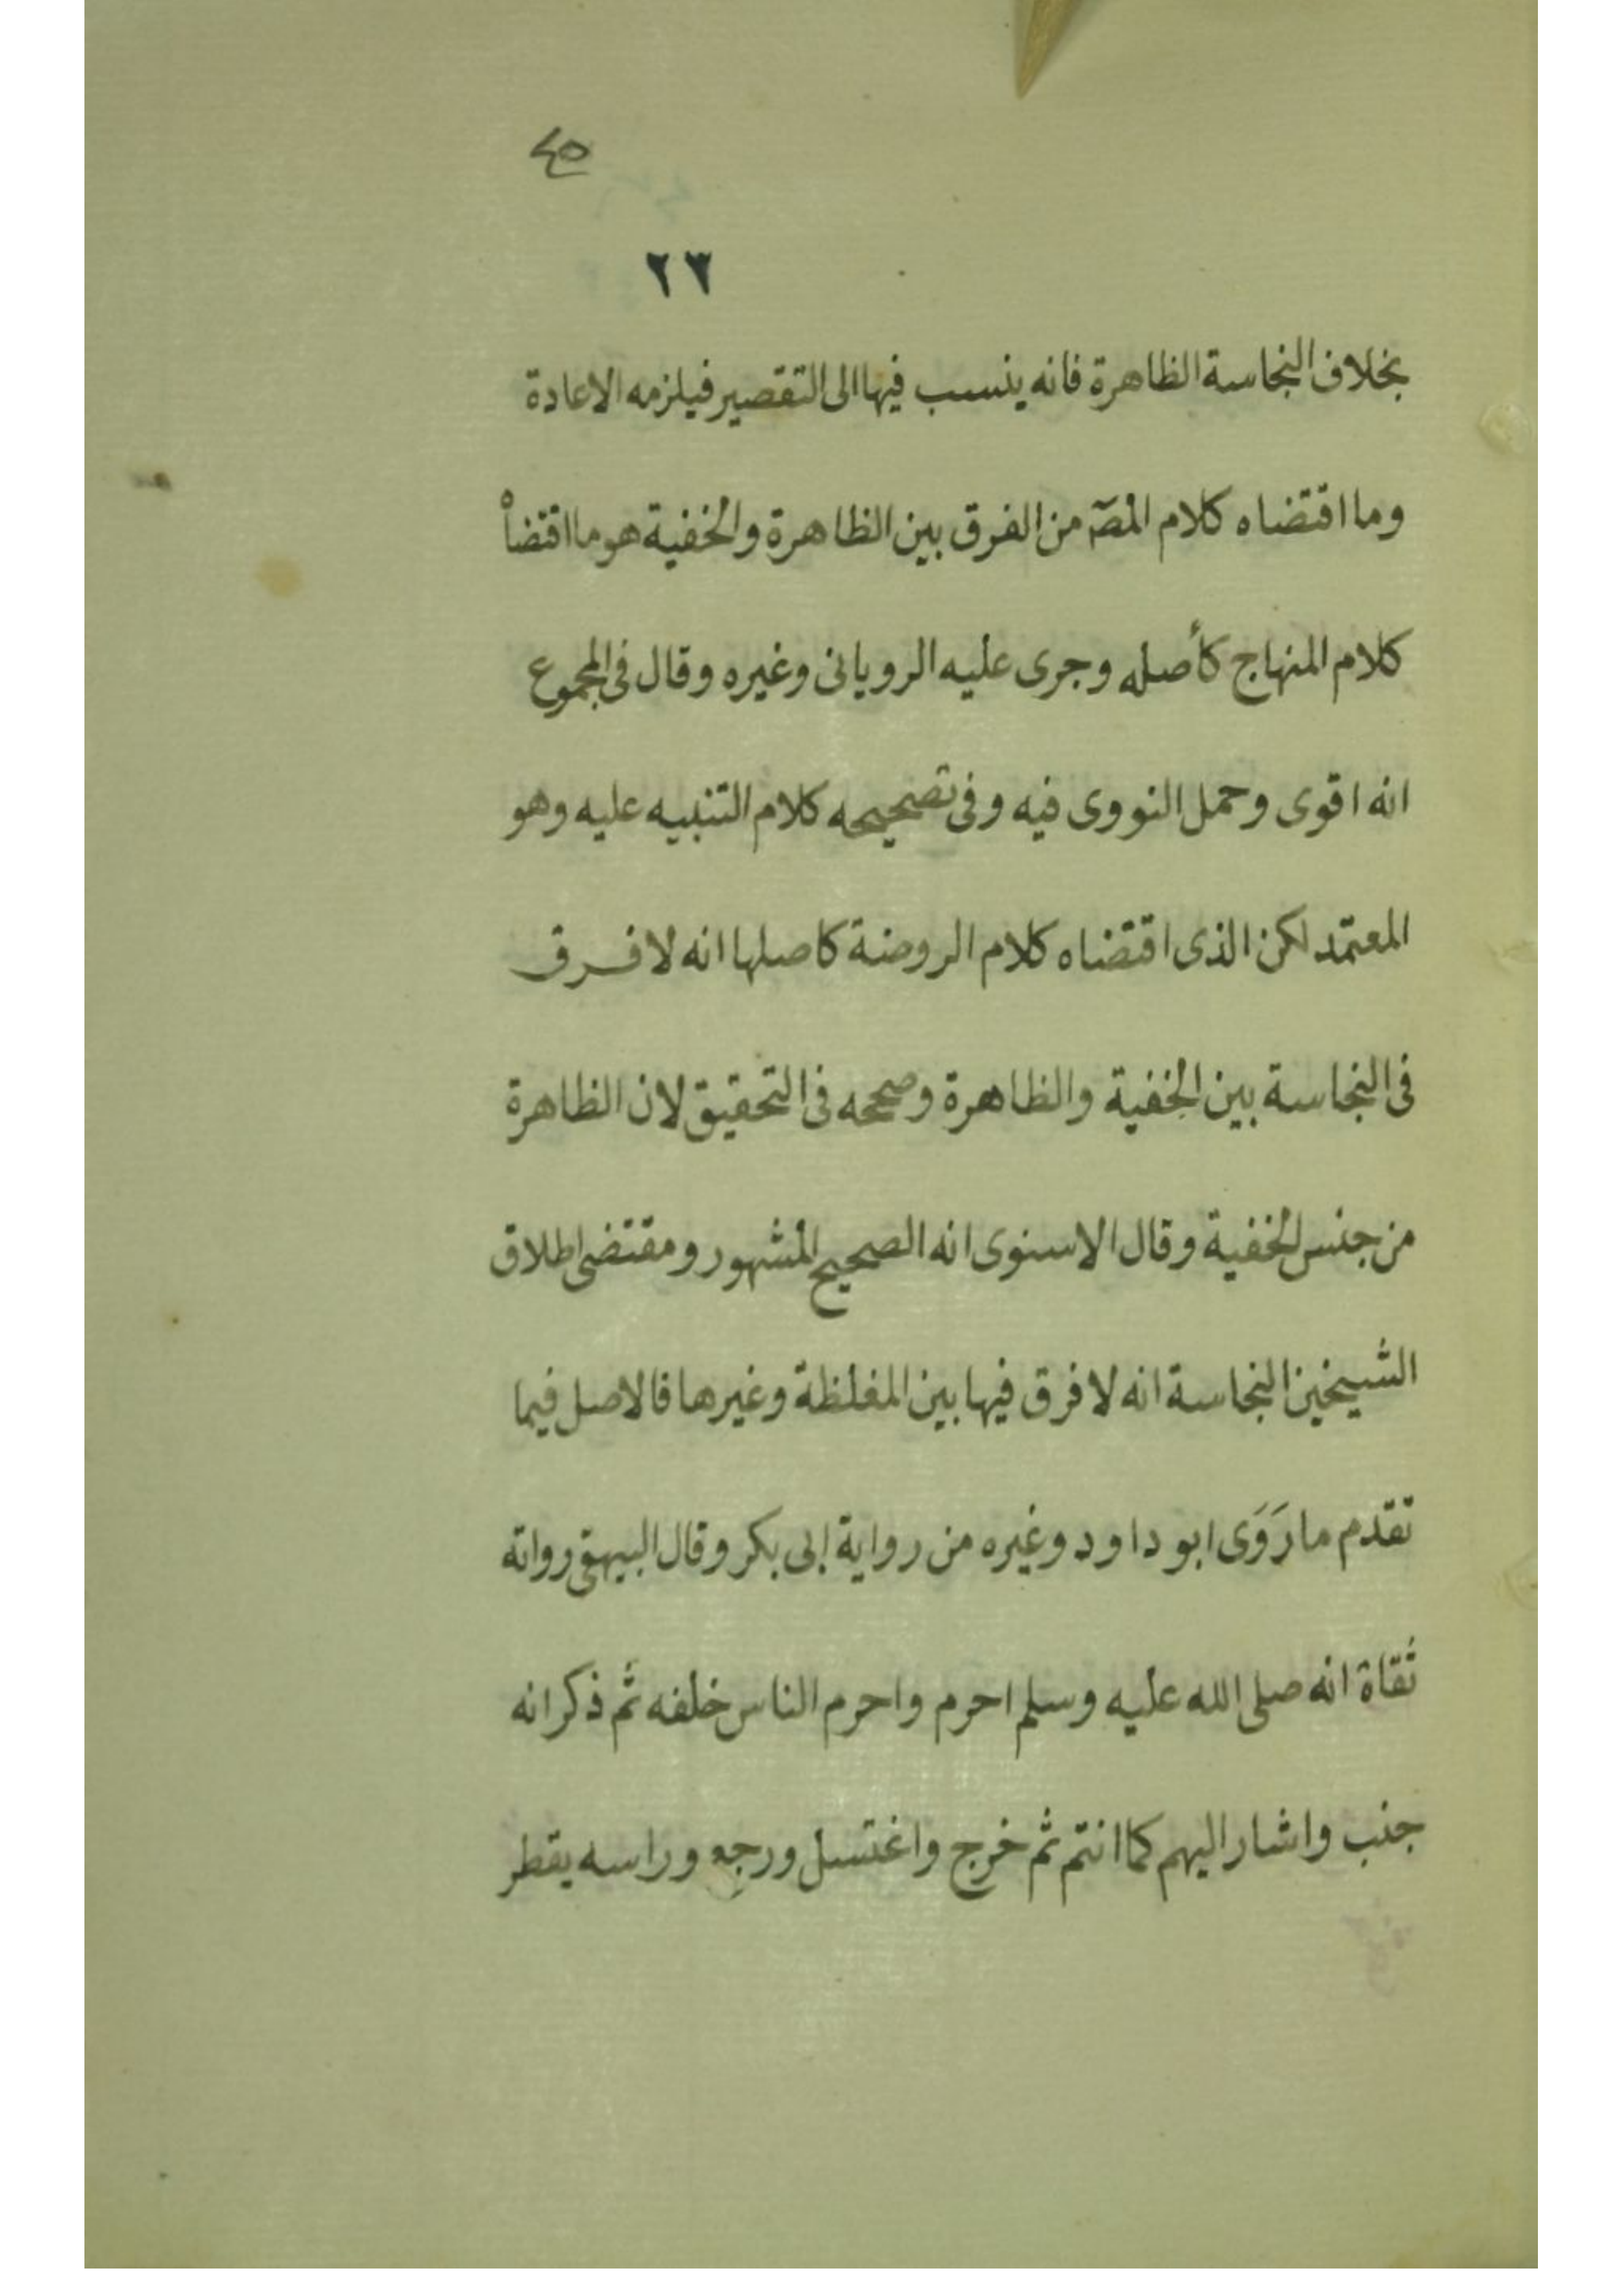 ٤٥
٢٣
بخلاف النجاسة الظاهرة فانه ينسب فيها الى التقصير فيلزمه الاعادة
وما اقتضاه كلام المصـ من الفرق بين الظاهرة والخفية هو ما اقتضاه
كلام المنهاج كأصله وجرى عليه الرويانى وغيره وقال فى المجموع
انه اقوى وحمل النووى فيه وفى تصحيحه كلام التنبيه عليه وهو
المعتمد لكن الذى اقتضاه كلام الروضة كاصلها انه لا فرق
فى النجاسة بين الخفية والظاهرة وصححه فى التحقيق لان الظاهرة
من جنس الخفية وقال الاسنوى انه الصحيح المشهور ومقتضى اطلاق
الشيخين النجاسة انه لا فرق فيها بين المغلظة وغيرها فالاصل فيما
تقدم ما رَوَى ابو داود وغيره من رواية ابى بكر وقال البيهقى رواته
ثقاة انه صلى الله عليه وسلم احرم واحرم الناس خلفه ثم ذكر انه
جنب واشار اليهم كما انتم ثم خرج واغتسل ورجع وراسه يقطر